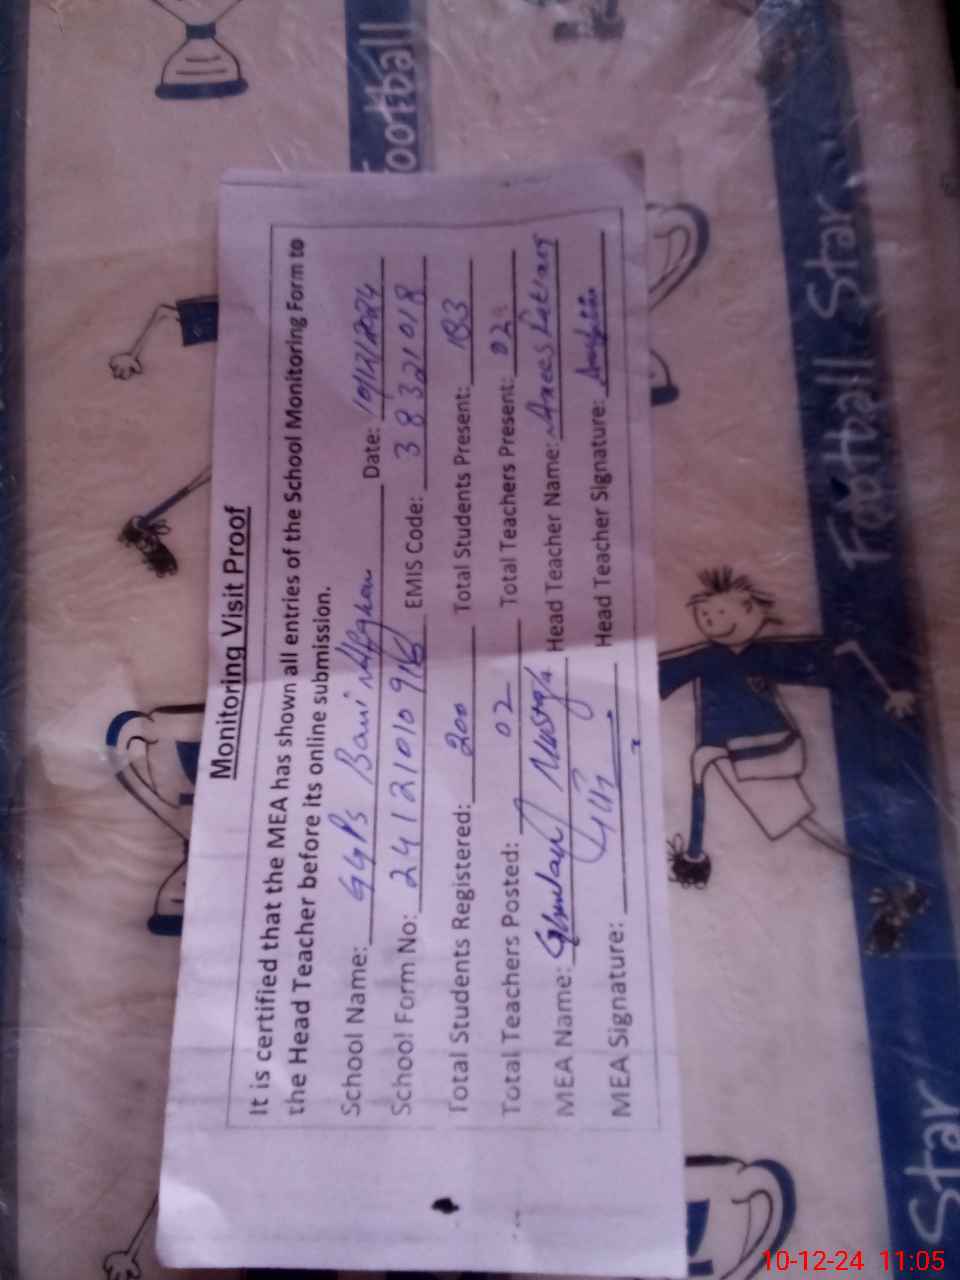 Monitoring Visit Proof
It is certified that the MEA has shown all entries of the School Monitoring Form to
the Head Teacher before its online submission.
School Name: GGPS Bani Afghan Date: 10/12/2024
School Form No: 2412101091 EMIS Code: 38321018
Total Students Registered: 200 Total Students Present: 183
Total Teachers Posted: 02 Total Teachers Present: 02
MEA Name: Ghulam Mustafa Head Teacher Name:
MEA Signature: Head Teacher Signature:
Football
Football Star
Star
10-12-24 11:05